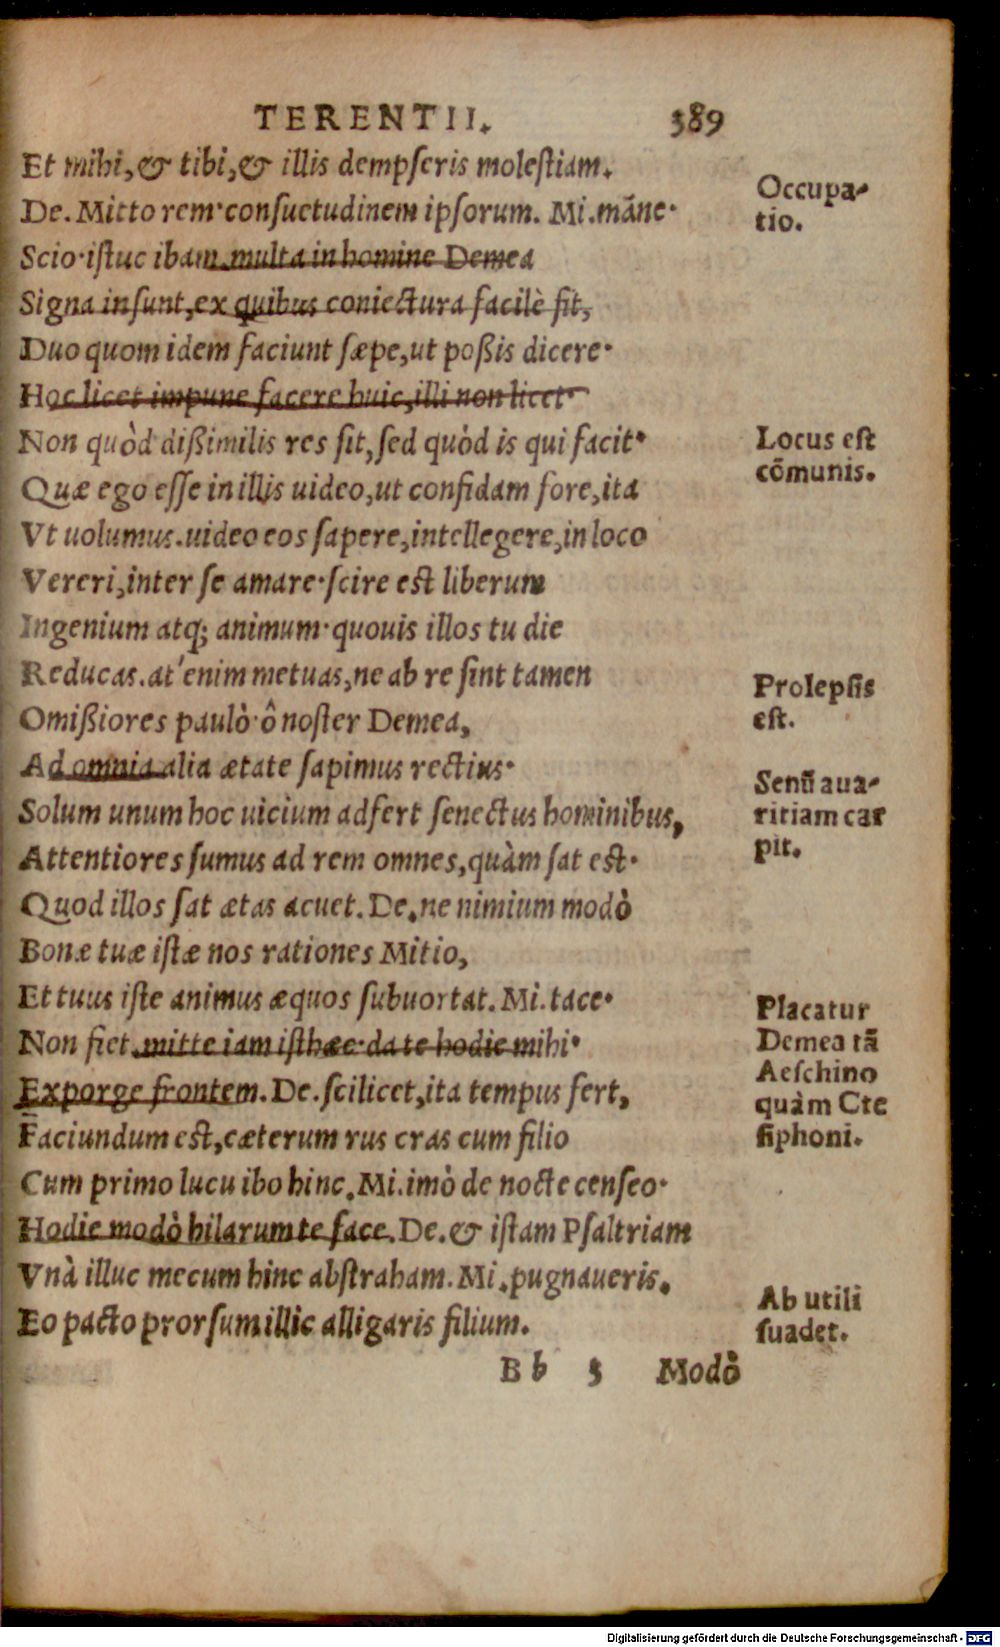 TERENTII. 389
Et mihi, & tibi, & illis dempſeris moleſtiam.
De. Mitto rem· conſuetudinem ipſorum. Mi. mãne·
Occupa-
tio.
Scio· iſtuc ibam. multa in homine Demea
Signa inſunt, ex quibus coniectura facilè fit,
Duo quom idem faciunt ſæpe, ut poßis dicere·
Hoc licet impune facere huic, illi non licet·
Non quòd dißimilis res ſit, ſed quòd is qui facit·
Locus eſt
cõmunis.
Quæ ego eſſe in illis uideo, ut confidam fore, ita
Vt uolumus. uideo eos ſapere, intellegere, in loco
Vereri, inter ſe amare· ſcire eſt liberum
Ingenium atq; animum· quouis illos tu die
Reducas. at' enim metuas, ne ab re ſint tamen
Prolepſis
eſt.
Omißiores paulò· ô noſter Demea,
Ad omnia alia ætate ſapimus rectius·
Solum unum hoc uicium adfert ſenectus hominibus,
Senũ aua-
ritiam car
pit.
Attentiores ſumus ad rem omnes, quàm ſat eſt·
Quod illos ſat ætas acuet. De. ne nimium modò
Bonæ tuæ iſtæ nos rationes Mitio,
Et tuus iſte animus æquos ſubuortat. Mi. tace·
Non fiet. mitte iam iſthæc· da te hodie mihi·
Placatur
Demea tã
Aeſchino
quàm Cte
ſiphoni.
Exporge frontem. De. ſcilicet, ita tempus fert,
Faciundum eſt, cæterum rus cras cum filio
Cum primo lucu ibo hinc. Mi. imò de nocte cenſeo·
Hodie modò hilarum te face. De. & iſtam Pſaltriam
Vnà illuc mecum hinc abſtraham. Mi. pugnaueris.
Eo pacto prorſum illic alligaris filium.
Ab utili
ſuadet.
B b 3 Modò
Digitalisierung gefördert durch die Deutsche Forschungsgemeinschaft - DFG